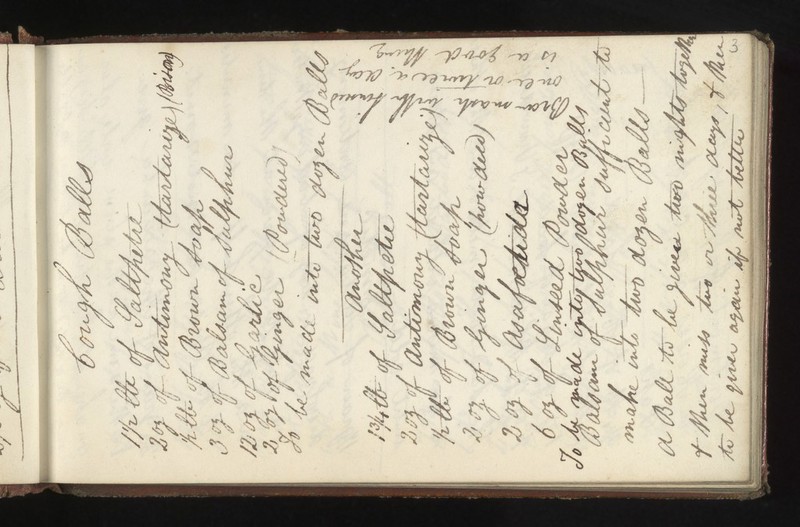 3
Cough Balls
1 1/2 lb of Saltpetre
2 oz of Antimony (tartarize)
1/2 lb of Brown Soap
3 oz of Balsam of Sulphur
12 oz of Garlic
2 oz of Ginger (Poundered)
To be made into two dozen Balls
Another
1 3/4 lb of Saltpetre
2 oz of Antimony (tartarize)
1/2 lb of Brown Soap
2 oz of Ginger (powdered)
2 oz of Asafoetida
6 oz of Linseed Pounder
To be made into two dozen Balls
Balsam of Sulphur sufficient to
make into two dozen Balls
A Ball to be given two nights together
& then miss two or three days, & then
to be given again if not better
Bran mash with linseed
once or twice a day
is a good thing